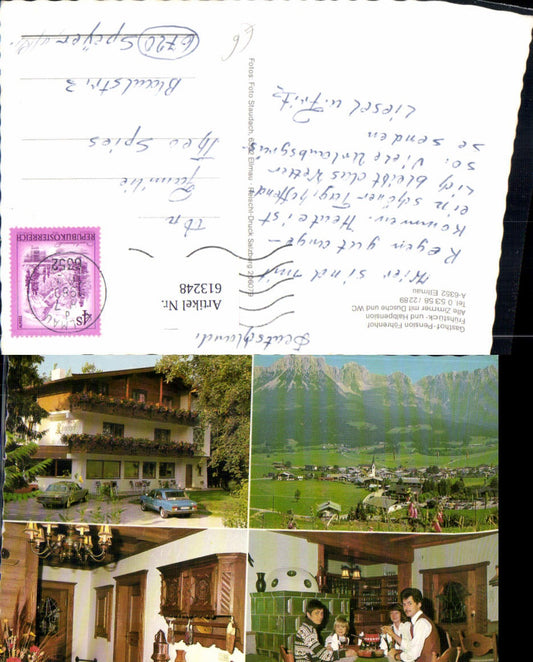 Gasthof-Pension Föhrenhof
Frühstück- und Halbpension
Alle Zimmer mit Dusche und WC
Tel. 0 53 58 / 2289
A-6352 Ellmau
Hier sind mit
Regen gut ange-
kommen. Heute ist
ein schöner Tag, hoffend-
lich bleibt das Wetter
so. Viele Urlaubsgrüße
senden
Liesel u. Fritz
Fotos: Foto Staudach, 6352 Ellmau
Artikel Nr.
613248
REPUBLIK ÖSTERREICH
4s
6352
ELLMAU
Familie
Theo Spies
6720 Speyer
Deutschland
66